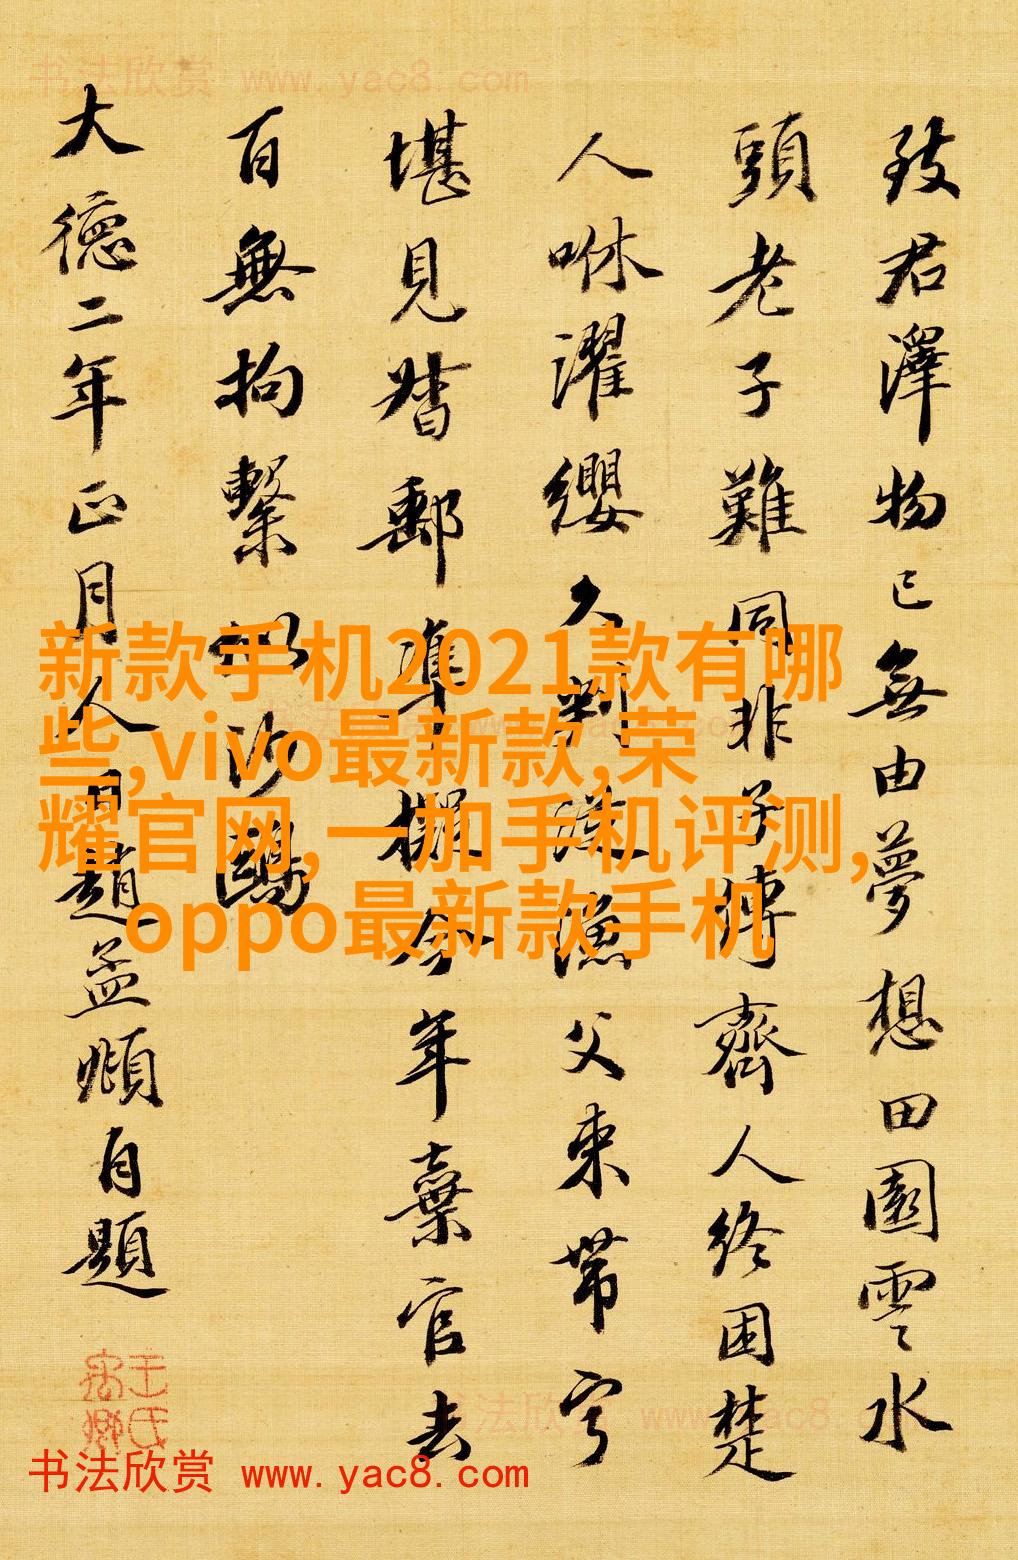 书法欣赏 www.yac8.com
致君澤物已無由夢想田園雲水
頭老子難同非子傳齊人終困楚
人咻濯纓久判從漁父束帶寧
堪見督郵準擬今年棄官去
百無拘繫似沙鷗
大德二年正月人日趙孟頫自題
新款手机2021款有哪
些,vivo最新款,荣
耀官网,一加手机评测,
oppo最新款手机
书法欣赏 www.yac8.com
书法欣赏 www.yac8.com